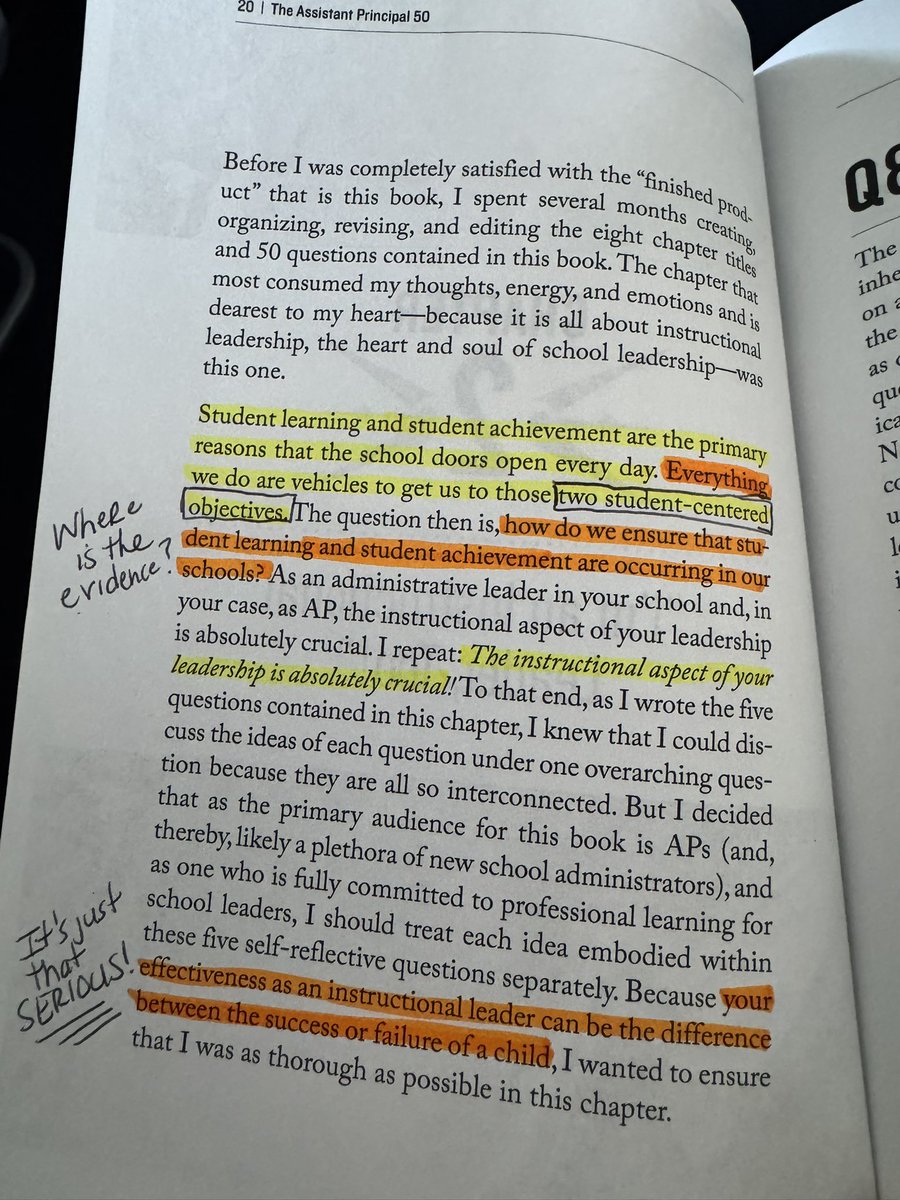 20 | The Assistant Principal 50
Before I was completely satisfied with the “finished prod-
uct” that is this book, I spent several months creating,
organizing, revising, and editing the eight chapter titles
and 50 questions contained in this book. The chapter that
most consumed my thoughts, energy, and emotions and is
dearest to my heart—because it is all about instructional
leadership, the heart and soul of school leadership—was
this one.
Student learning and student achievement are the primary
reasons that the school doors open every day. Everything
we do are vehicles to get us to those two student-centered
objectives. The question then is, how do we ensure that stu-
dent learning and student achievement are occurring in our
schools? As an administrative leader in your school and, in
your case, as AP, the instructional aspect of your leadership
is absolutely crucial. I repeat: The instructional aspect of your
leadership is absolutely crucial! To that end, as I wrote the five
questions contained in this chapter, I knew that I could dis-
cuss the ideas of each question under one overarching ques-
tion because they are all so interconnected. But I decided
that as the primary audience for this book is APs (and,
thereby, likely a plethora of new school administrators), and
as one who is fully committed to professional learning for
school leaders, I should treat each idea embodied within
these five self-reflective questions separately. Because your
effectiveness as an instructional leader can be the difference
between the success or failure of a child, I wanted to ensure
that I was as thorough as possible in this chapter.
Where
is the
evidence?
It's just
that
SERIOUS!
The
on
the
as